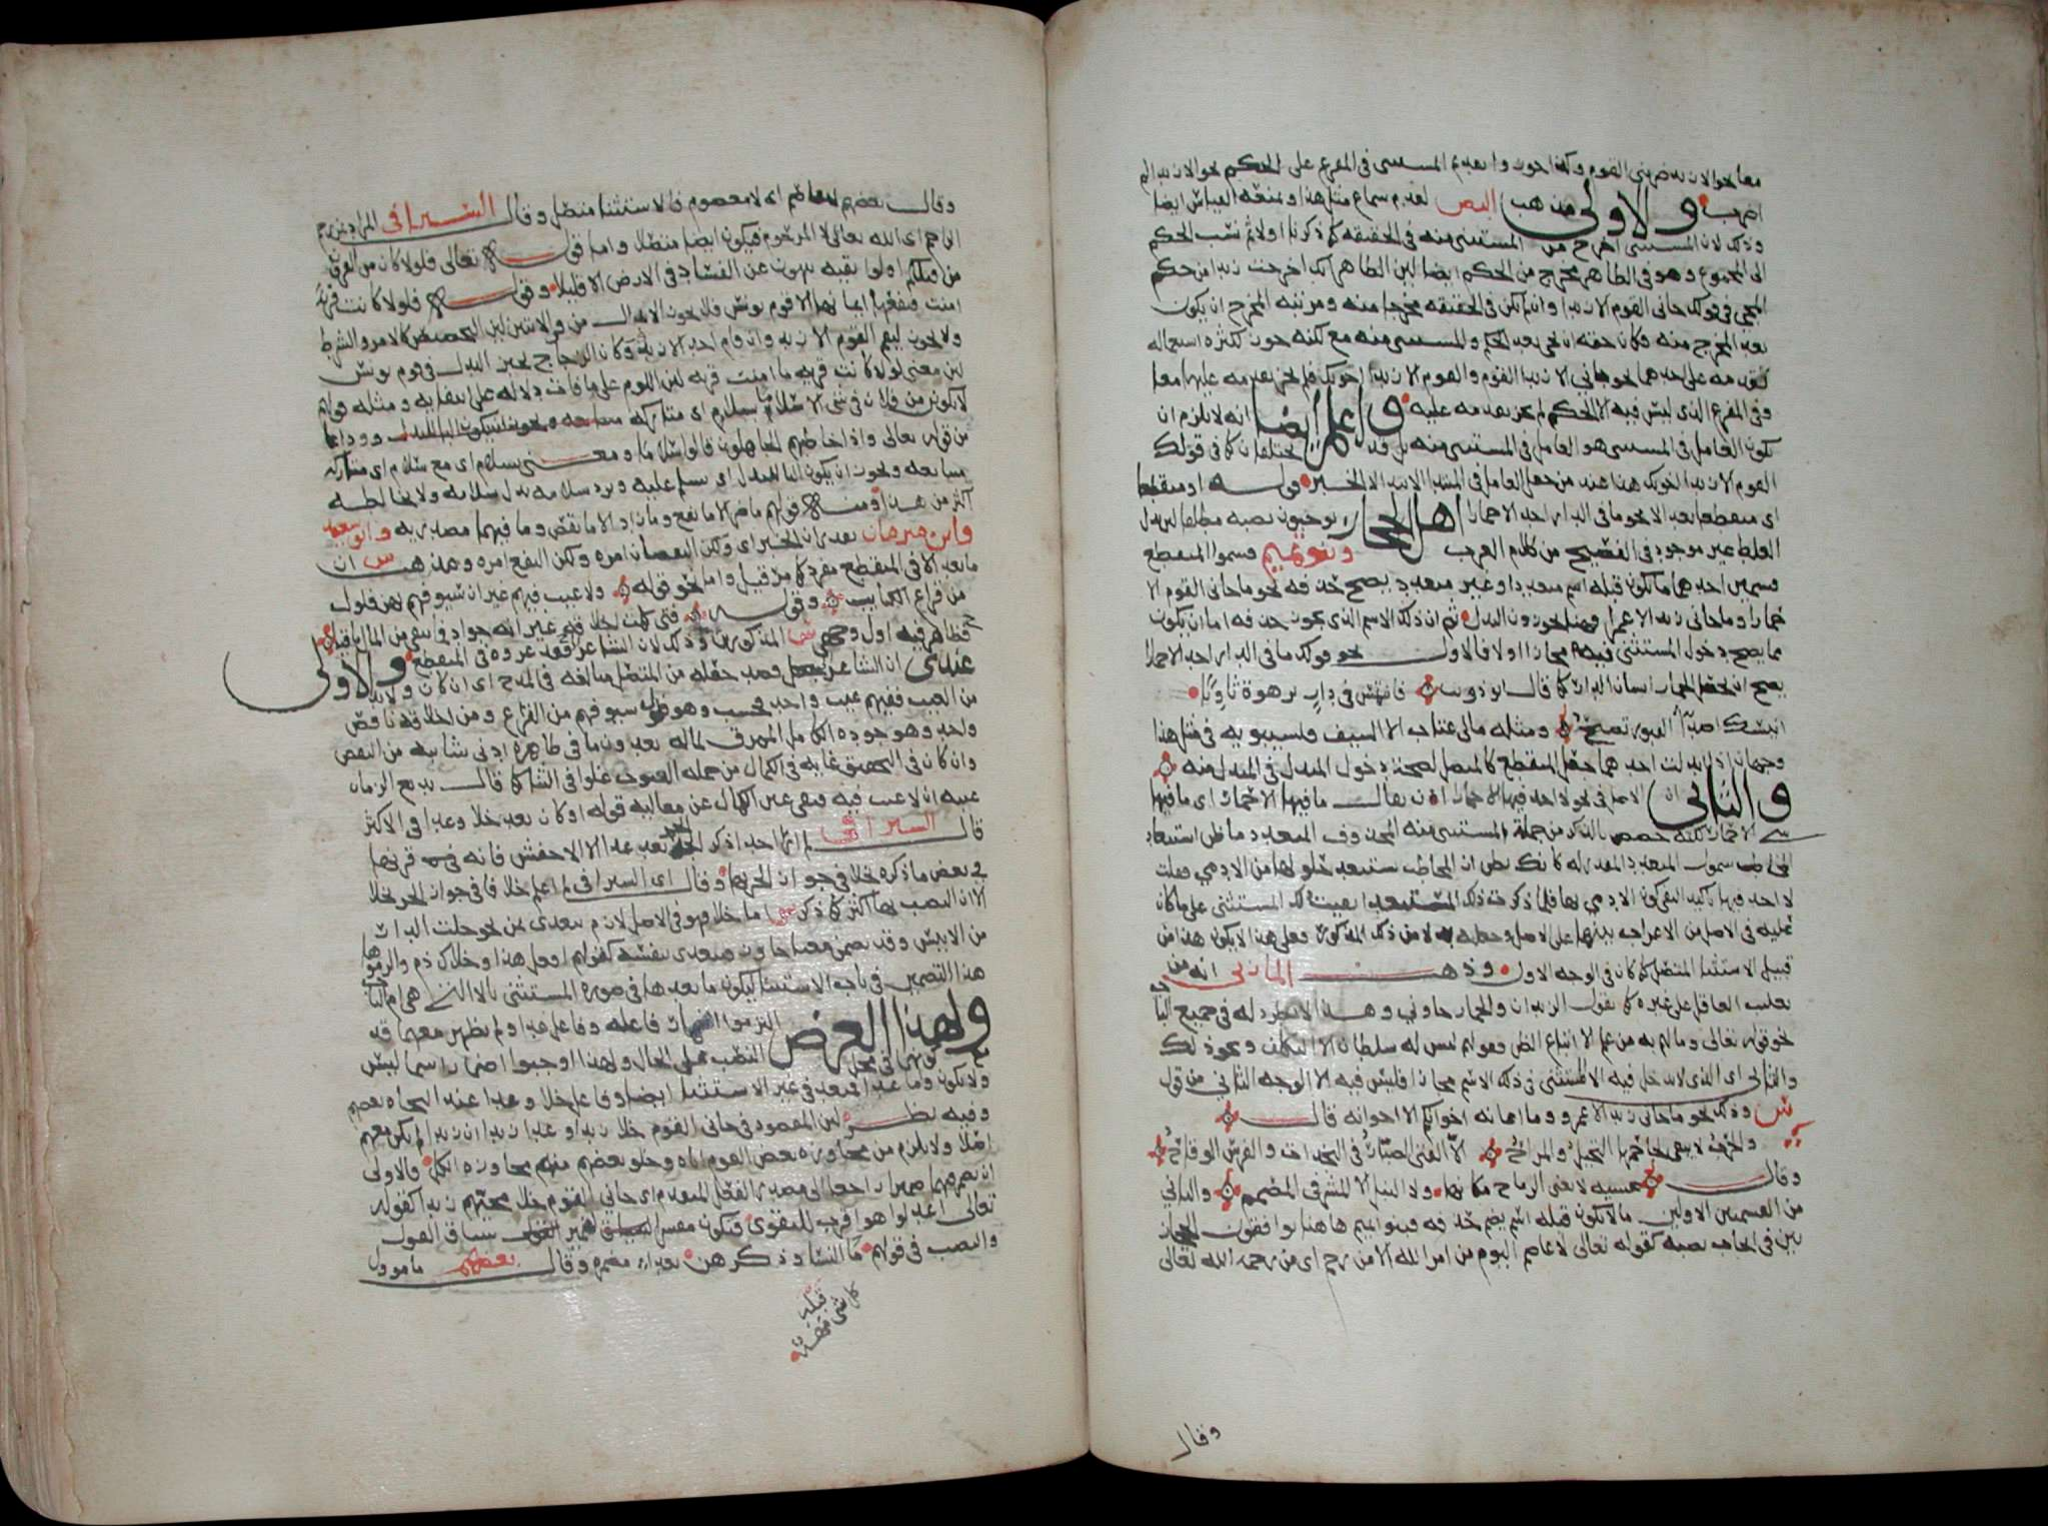 معا نحو الا زيدا ضربني القوم وكذا جوزوا تقديم المستثنى في المفرغ على الحكم نحو الا زيدا لم
اضرب والاولى مذهب البصر لعدم سماع مثل هذا ويمنعه القياس ايضا
وذلك لان المستثنى اخرج من المستثنى منه في الحقيقه كما ذكرنا اولا ثم نسب الحكم
الى المجموع وهو في الظاهر مخرج من الحكم ايضا لان الظاهر انك اخرجت زيدا من حكم
المجي في قولك جاني القوم الا زيدا وان لم يكن في الحقيقه مخرجا منه ومرتبه المخرج ان يكون
بعد المخرج منه فكان حقه ان يجي بعد الحكم والمستثنى منه معا لكنه جوز لكثرة استعماله
تقدمه على احدهما نحو جاني الا زيدا القوم والقوم الا زيدا اخوتك فلم يجز تقدمه عليهما معا
وفي المفرغ الذي ليس فيه الا الحكم لم يجز تقدمه عليه واعلم ايضا انه لا يلزم ان
يكون العامل في المستثنى هو العامل في المستثنى منه بل قد يختلفان كما في قولك
القوم الا زيدا اخوتك هذا عند من جعل العامل في المبتدا الابتدا الخبر قوله او منقطعا
اي منقطعا بعد الا نحو ما في الدار احد الا حمارا اهل الحجاز يوجبون نصبه مطلقا لان بدل
الغلط غير موجود في الفصيح من كلام العرب وبنو تميم قسموا المنقطع
قسمين احدهما ما يكون قبله اسم متعدد او غير متعدد يصح حذفه نحو ما جاني القوم الا
حمارا وما جاني زيد الا عمرا فهنا يجوزون البدل ثم ان ذلك الاسم الذي يجوز حذفه اما ان يكون
مما يصح دخول المستثنى فيه مجازا اولا فالاول نحو قولك ما في الدار احد الا حمارا
يصح ان يجعل الحمار انسان الدار كما قال ابو ذويب فان تمس في دار برهوة ثاويا
انيسك اصدا القبور تصيح ومثله مالي عتاب الا السيف ولسيبويه في مثل هذا
وجهان اذا ابدلت احدهما جعل المنقطع كالمتصل لصحة دخول المبدل في المبدل منه
والثاني ان الاصل في نحو لا احد فيها الا حمار ان يقال ما فيها الا حمار اي ما فيها
شي الا حمار لكنه خصص بالذكر من جملة المستثنى منه المحذوف المتعدد ما ظن استبعاد
المخاطب شمول المتعدد المقدر له كانك تظن ان المخاطب يستبعد خلوها من الادمي فقلت
لا احد فيها تاكيدا لنفي كون الادمي بها فلما ذكرت ذلك المستبعد ابقيت ذلك المستثنى على ما كان
عليه في الاصل من الاعراب تنبيها على الاصل وجعله بدلا من ذلك المذكور فعلى هذا لا يكون هذا من
قبيل الاستثنا المتصل كما كان في الوجه الاول وذهب المازني انه من
تغليب العاقل على غيره كما تقول الزيدان والحمار جاوني وهذا لا يطرد له في جميع الباب
نحو قوله تعالى وما لهم به من علم الا اتباع الظن وقولهم ليس له سلطان الا التكلف ونحو ذلك
والثاني اي الذي لا يدخل فيه المستثنى في ذلك الاسم مجازا فليس فيه الا الوجه الثاني من قول
س وذلك نحو ما جاني زيد الا عمرو وما اعانه اخوانكم الا اخوانه قال
والحرب لا يبقى لجاحمها التخيل والمراح الا الفتى الصبار في النجدات والفرس الوقاح
وقال عشيه لا تغني الرماح مكانها ولا النبل الا المشرفي المصمم والثاني
من القسمين الاولين ما لا يكون قبله اسم يصح حذفه فبنو تميم هاهنا يوافقون الحجاز
يين في ايجاب نصبه كقوله تعالى لا عاصم اليوم من امر الله الا من رحم اي من رحمه الله تعالى
وقال
وقال بعضهم لا عاصم اي لا معصوم فالاستثنا متصل وقال السيرافي المراد بمن رحم
الراحم اي الله تعالى لا المرحوم فيكون ايضا متصلا واما قوله تعالى فلولا كان من القرون
من قبلكم اولوا بقيه ينهون عن الفساد في الارض الا قليلا وقوله فلولا كانت قرية
امنت فنفعها ايمانها الا قوم يونس فلا يجوز الابدال من الاثنين لان التحضيض كالامر والشرط
ولا يجوز ليقم القوم الا زيد وان قام احد الا زيد وكان الزجاج يجيز البدل في قوم يونس
لان معنى لولا كانت قرية ما امنت قرية لان اللوم على ما فات دلاله على انتفايه ومثله قولهم
لا تكونن من فلان في شي الا سلاما بسلام اي متاركه
من قوله تعالى واذا خاطبهم الجاهلون قالوا سلاما ومعنى بسلام اي مع سلام اي متاركه
متتابعه ويجوز ان يكون البا للبدل اي يسلم عليه ويرد سلامه بدل سلامه ولا يخالطه
اكثر من هذا ومنه قولهم ما ضر الا ما نفع وما زاد الا ما نقص وما فيهما مصدريه وابو سعيد
وابن مبرمان يقدران الخبر اي ولكن النقصان امره ولكن النفع امره ومذهب س ان
ما بعد الا في المنقطع مفرد كما مر قبيل واما نحو قوله ولا عيب فيهم غير ان سيوفهم بهن فلول
من قراع الكتايب وقوله فتى كملت اخلاقه غير انه جواد فما يبقي من المال باقيا
فظاهر فيه اول وجهي المذكورين وذلك لان الشاعر في المنقطع والاولى
عندي ان الشاعر قصد جعله من المتصل مبالغه في المدح اي ان كان ولا بد
من العيب ففيهم عيب واحد فحسب وهو فلول سيوفهم من القراع ومن اخلاقه ناقص
واحد وهو جوده الكامل المهرق لماله بعد وما في ظاهره ادنى شايبه من النقص
وان كان في التحقيق غايه في الكمال من جمله العيوب غلوا في الثنا كما قال بديع الزمان
عيبه ان لا عيب فيه فنفى عين الكمال عن معاليه قوله او كان بعد خلا وعدا في الاكثر
قال السيرافي لم ار احدا ذكر الجر بعد عدا الا الاخفش فانه قرنها
في بعض ما ذكره بخلا في جواز الجر بها وقال اي السيرافي لم اعلم خلافا في جواز الجر بخلا
الا ان النصب بها اكثر كما ذكر اما خلا فهو في الاصل لازم يتعدى بمن نحو خلت الدار
من الانيس وقد يضمن معنى جاوز فيتعدى بنفسه كقولهم افعل هذا وخلاك ذم والزموها
هذا التضمين في باب الاستثنا ليكون ما بعدها في صورة المستثنى بالا التي هي ام الباب
ولهذا الغرض التزموا اضمار فاعله وفاعل عدا ولم يظهر معهما قد
مع كونهما في محل النصب على الحال ولهذا اوجبوا اضمار اسما ليس
ولا يكون وما عدا فمتعد في غير الاستثنا ايضا وفاعل خلا وعدا عند النحاه بعضهم
وفيه نظر لان المقصود في جاني القوم خلا زيدا وعدا زيدا ان زيدا لم يكن معهم
اصلا ولا يلزم من مجاوزة بعض القوم اياه وخلو بعضهم منهم مجاوزة الكل والاولى
ان نضمر فيهما ضميرا راجعا الى مصدر الفعل المتقدم اي جاني القوم خلا مجيئهم زيدا كقوله
تعالى اعدلوا هو اقرب للتقوى فيكون مفسر الضمير سياق القول
والنصب في قولهم ما النسا وذكرهن بعدا مضمره وقال بعضهم ما موول
كل شي قبله مهه